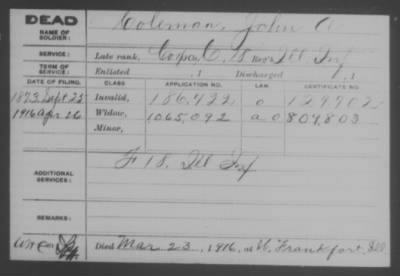 DEAD
NAME OF SOLDIER: Coleman, John A
SERVICE: Late rank, Corp. Co. C, 18 Reg't Ill Inf
TERM OF SERVICE: Enlisted , 1 Discharged , 1
DATE OF FILING. CLASS APPLICATION NO. LAW CERTIFICATE NO.
1873 Sept 25 Invalid, 186,422 o 129702
1916 Apr 26 Widow, 1065,092 a o 809,803
Minor,
ADDITIONAL SERVICES: F 18. Ill Inf
REMARKS:
Died Mar 23, 1916, at W. Frankfort, Ill